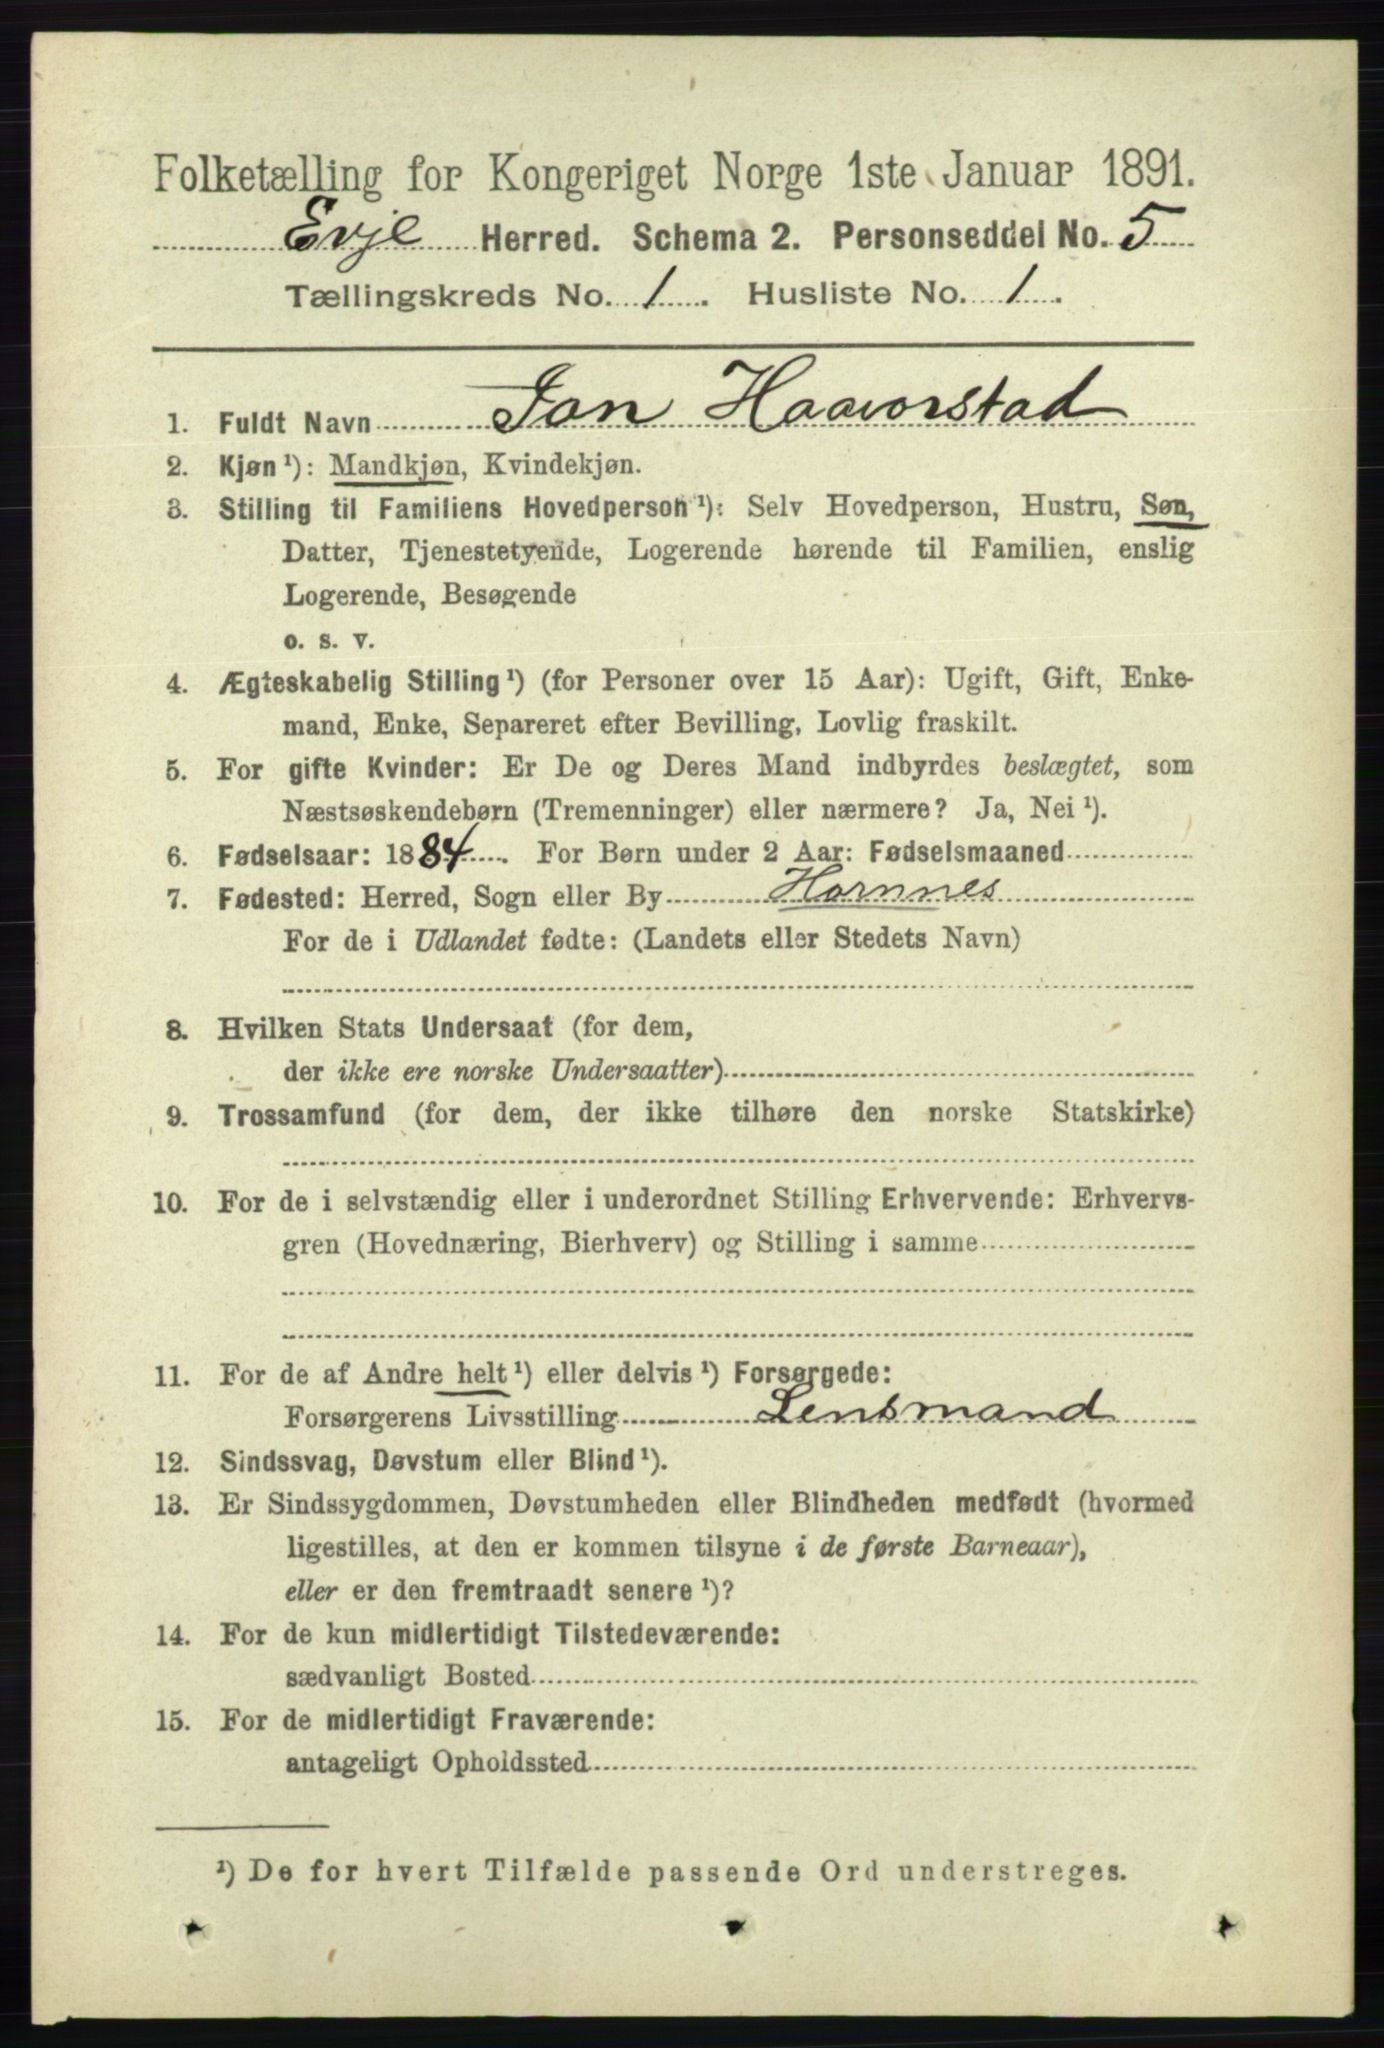 Folketælling for Kongeriget Norge 1ste Januar 1891.
Evje Herred. Schema 2. Personseddel No. 5
Tællingskreds No. 1. Husliste No. 1.
1. Fuldt Navn Jon Haavorstad
2. Kjøn ¹): Mandkjøn, Kvindekjøn.
3. Stilling til Familiens Hovedperson ¹): Selv Hovedperson, Hustru, Søn,
Datter, Tjenestetyende, Logerende hørende til Familien, enslig
Logerende, Besøgende
o. s. v.
4. Ægteskabelig Stilling ¹) (for Personer over 15 Aar): Ugift, Gift, Enke-
mand, Enke, Separeret efter Bevilling, Lovlig fraskilt.
5. For gifte Kvinder: Er De og Deres Mand indbyrdes beslægtet, som
Næstsøskendebørn (Tremenninger) eller nærmere? Ja, Nei ¹).
6. Fødselsaar: 1884. For Børn under 2 Aar: Fødselsmaaned
7. Fødested: Herred, Sogn eller By Hornnes
For de i Udlandet fødte: (Landets eller Stedets Navn)
8. Hvilken Stats Undersaat (for dem,
der ikke ere norske Undersaatter)
9. Trossamfund (for dem, der ikke tilhøre den norske Statskirke)
10. For de i selvstændig eller i underordnet Stilling Erhvervende: Erhvervs-
gren (Hovednæring, Bierhverv) og Stilling i samme
11. For de af Andre helt ¹) eller delvis ¹) Forsørgede:
Forsørgerens Livsstilling Lensmand
12. Sindssvag, Døvstum eller Blind ¹).
13. Er Sindssygdommen, Døvstumheden eller Blindheden medfødt (hvormed
ligestilles, at den er kommen tilsyne i de første Barneaar),
eller er den fremtraadt senere ¹)?
14. For de kun midlertidigt Tilstedeværende:
sædvanligt Bosted
15. For de midlertidigt Fraværende:
antageligt Opholdssted
¹) De for hvert Tilfælde passende Ord understreges.